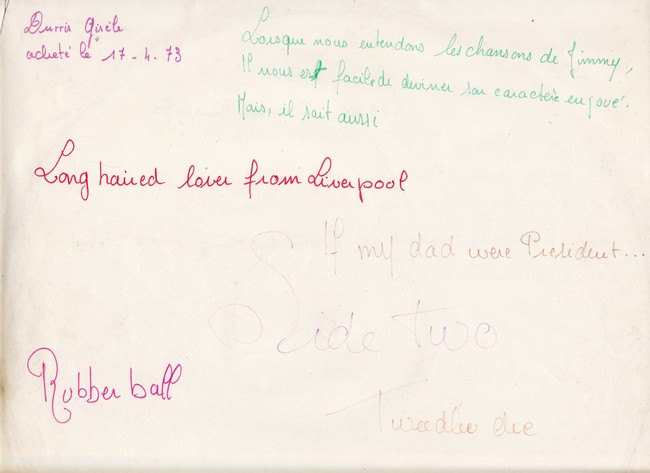 Durris Gisèle
acheté le 17-4.73
Lorsque nous entendons les chansons de Jimmy,
Il nous est facile de deviner son caractère enjoué.
Mais, il sait aussi
Long haired lover from Liverpool
If my dad were President...
Side two
Rubber ball
Tweedlee dee